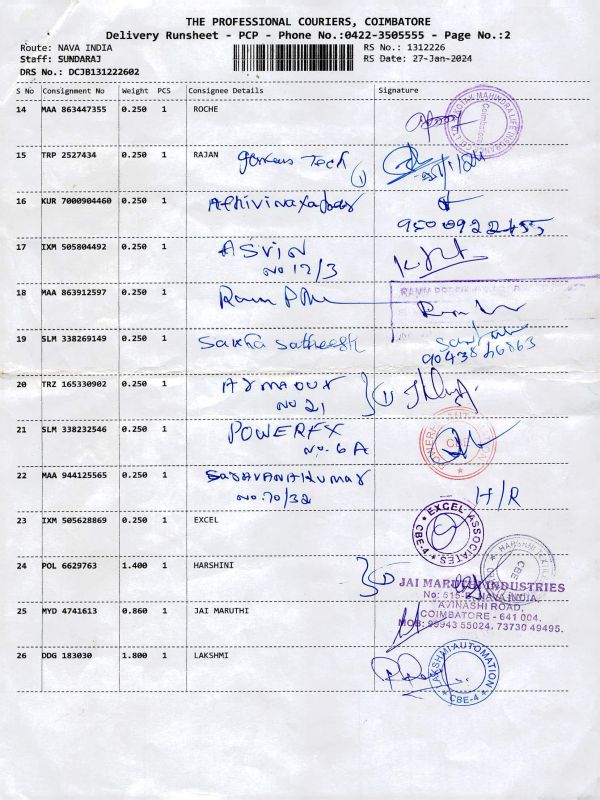 THE PROFESSIONAL COURIERS, COIMBATORE
Delivery Runsheet - PCP - Phone No.:0422-3505555 - Page No.:2
Route: NAVA INDIA RS No.: 1312226
Staff: SUNDARAJ RS Date: 27-Jan-2024
DRS No.: DCJB131222602
S No Consignment No Weight PCS Consignee Details Signature
14 MAA 863447355 0.250 1 ROCHE
KOTAK MAHINDRA LIFE Coimbatore
15 TRP 2527434 0.250 1 RAJAN Tech (1)
16 KUR 7000904460 0.250 1
17 IXM 505804492 0.250 1 ASVIN
No 17/3
18 MAA 863912597 0.250 1 Ram
19 SLM 338269149 0.250 1 Satheesh
9043846863
20 TRZ 165330902 0.250 1 (1)
No 21
21 SLM 338232546 0.250 1 POWERFX
No. 6A
CBE
22 MAA 944125565 0.250 1 Saravanakumar
No. 70/32 H/R
23 IXM 505628869 0.250 1 EXCEL
EXCEL ASSOCIATES CBE-4
24 POL 6629763 1.400 1 HARSHINI
HARSHINI CBE
JAI MARUTHI INDUSTRIES
No: 515-B, NAVA INDIA,
25 MYD 4741613 0.860 1 JAI MARUTHI AVINASHI ROAD,
COIMBATORE - 641 004.
MOB: 99943 55024, 73730 49495.
26 DDG 183030 1.800 1 LAKSHMI
LAKSHMI AUTOMATION CBE-4